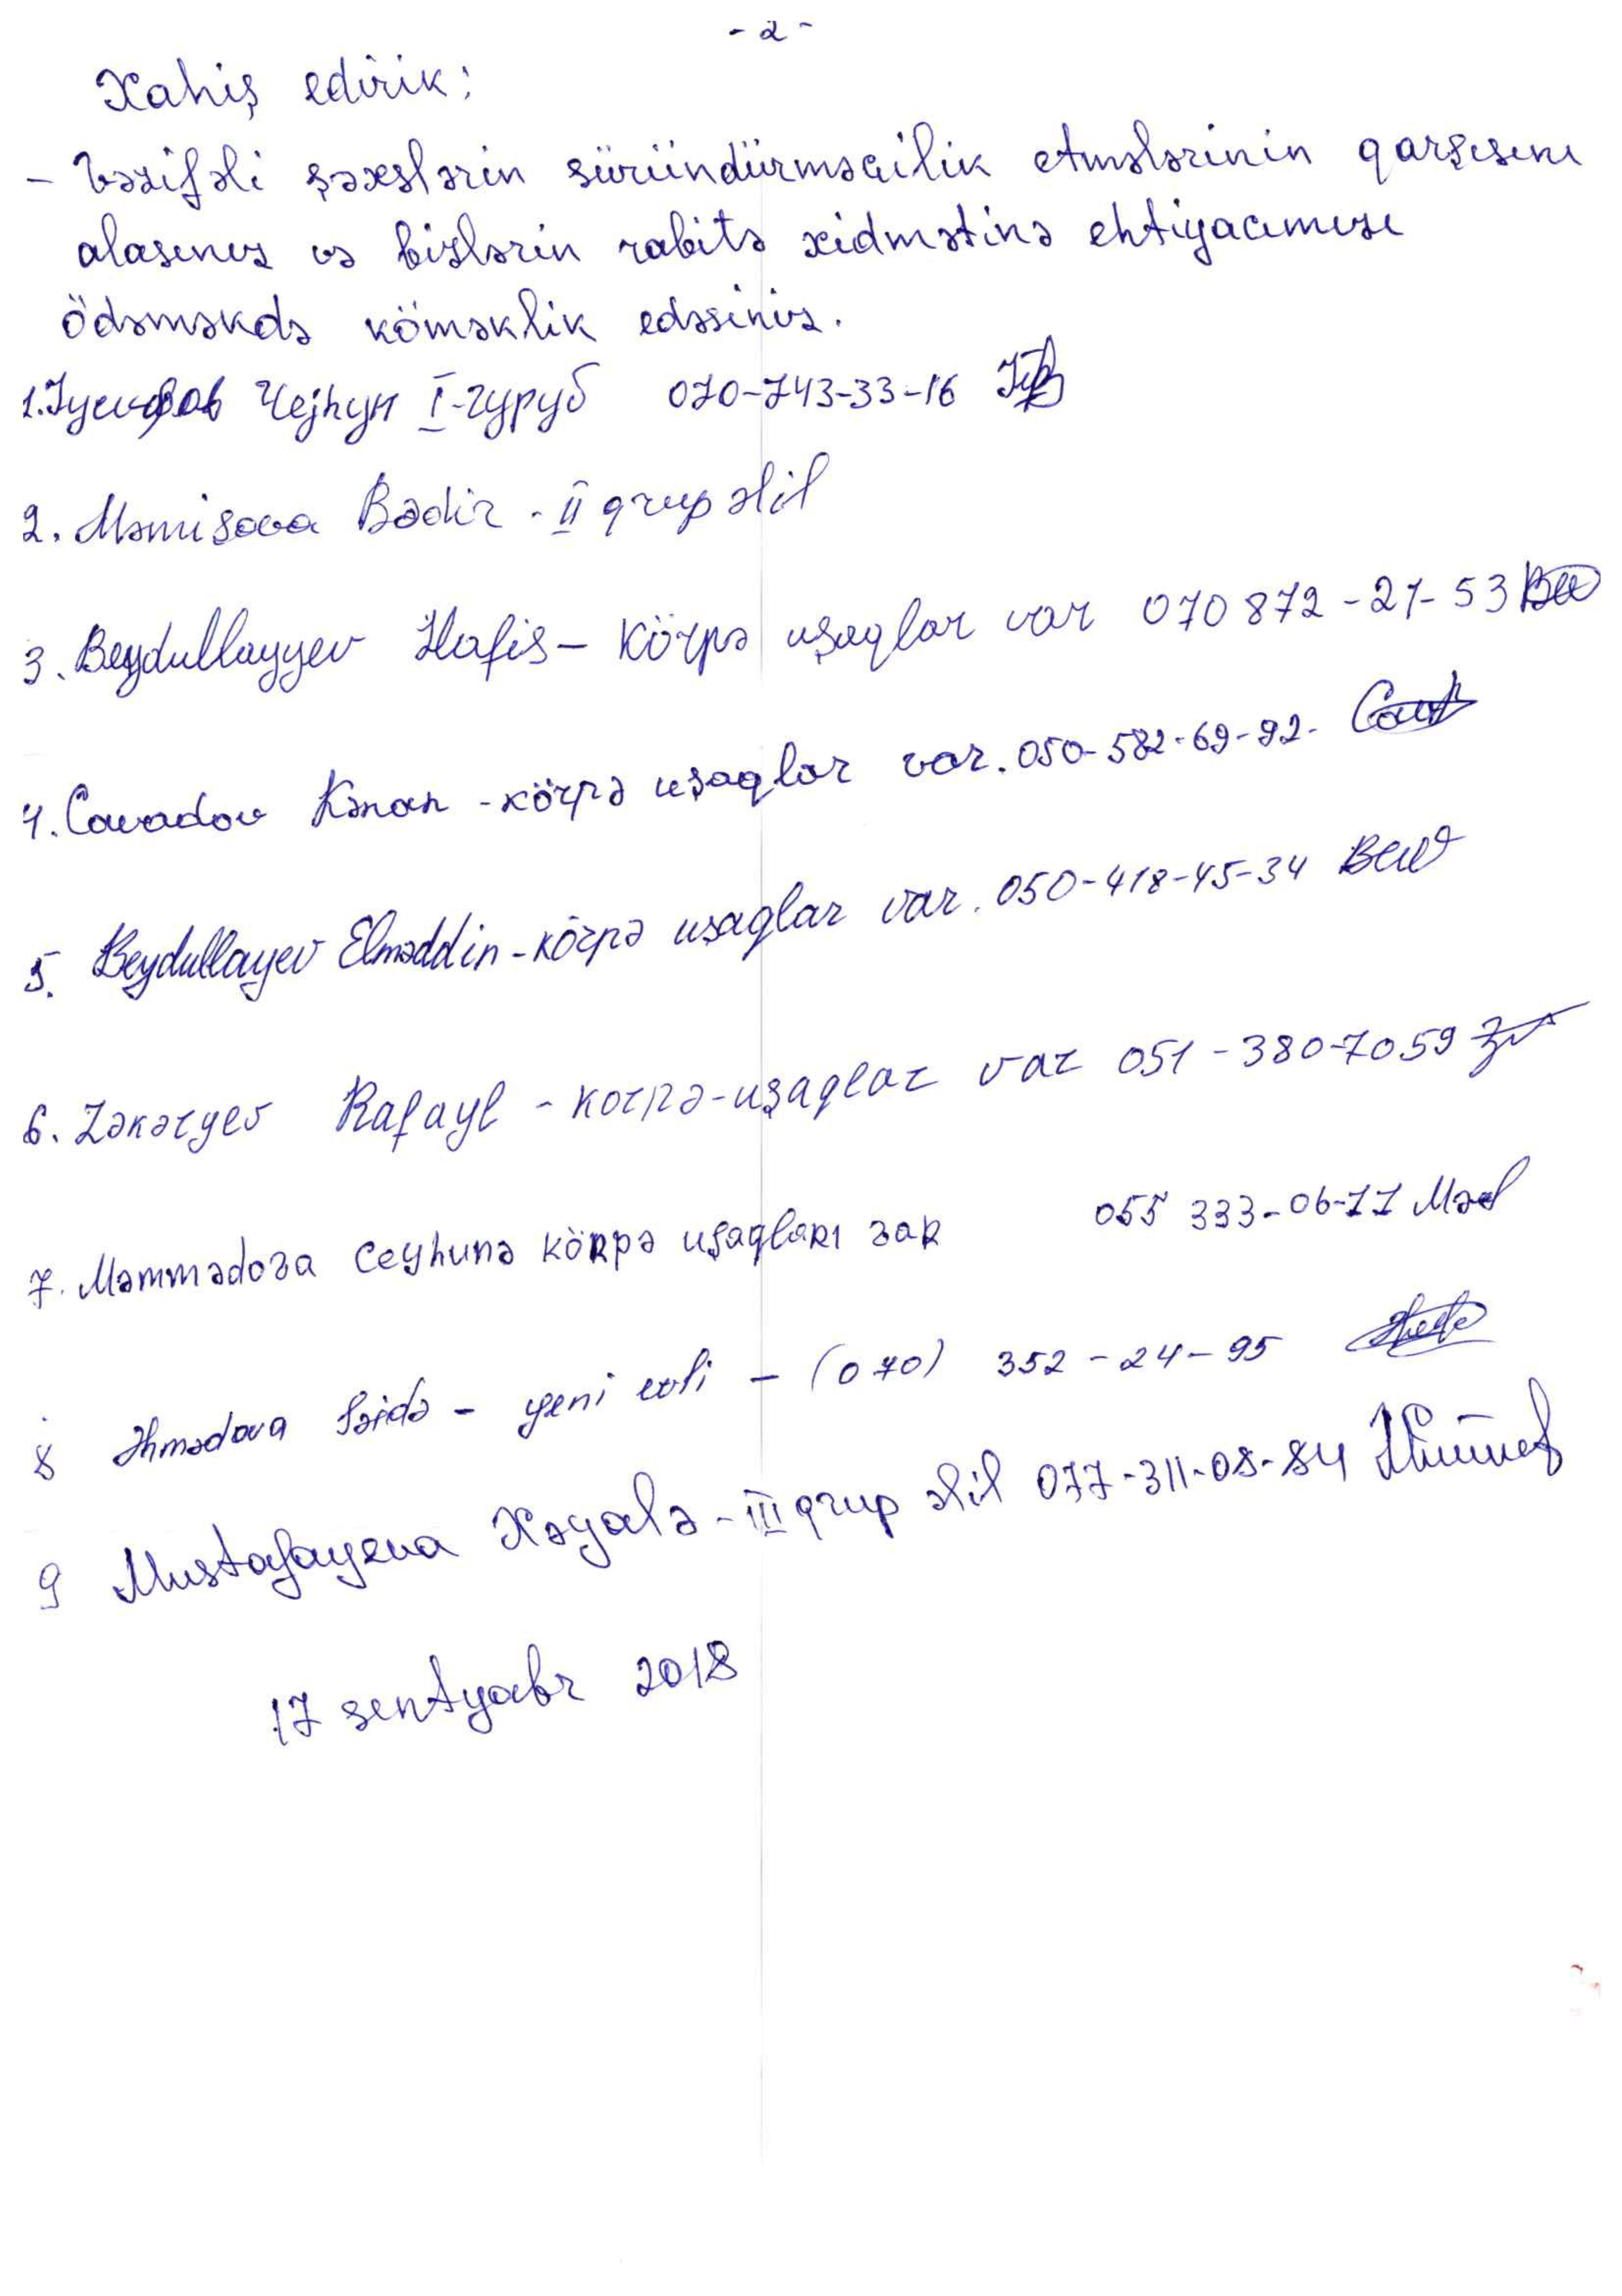 - 2 -
Xahiş edirik:
- Vəzifəli şəxslərin süründürməçilik etmələrinin qarşısını
alasınız və bizlərin rabitə xidmətinə ehtiyacımızı
ödəməkdə köməklik edəsiniz.
1. Јусифов Чејһун I-групуб 070-743-33-16
2. Məmişova Bədir - II qrup əlil
3. Beydullayyev Hafis - Körpə uşaqlar var 070 872-21-53
4. Cavadov Kənan - körpə uşaqlar var. 050-582-69-92-
5. Beydullayev Elməddin - körpə uşaqlar var. 050-418-45-34
6. Zəkəryev Rafayl - korpə-uşaqlar var 051-380-7059
7. Məmmədova Ceyhunə körpə uşaqları var 055 333-06-77
8 Əhmədova Səidə - yeni evli - (070) 352-24-95
9 Mustafayeva Xəyalə - III qrup əlil 077-311-08-84
17 sentyabr 2018